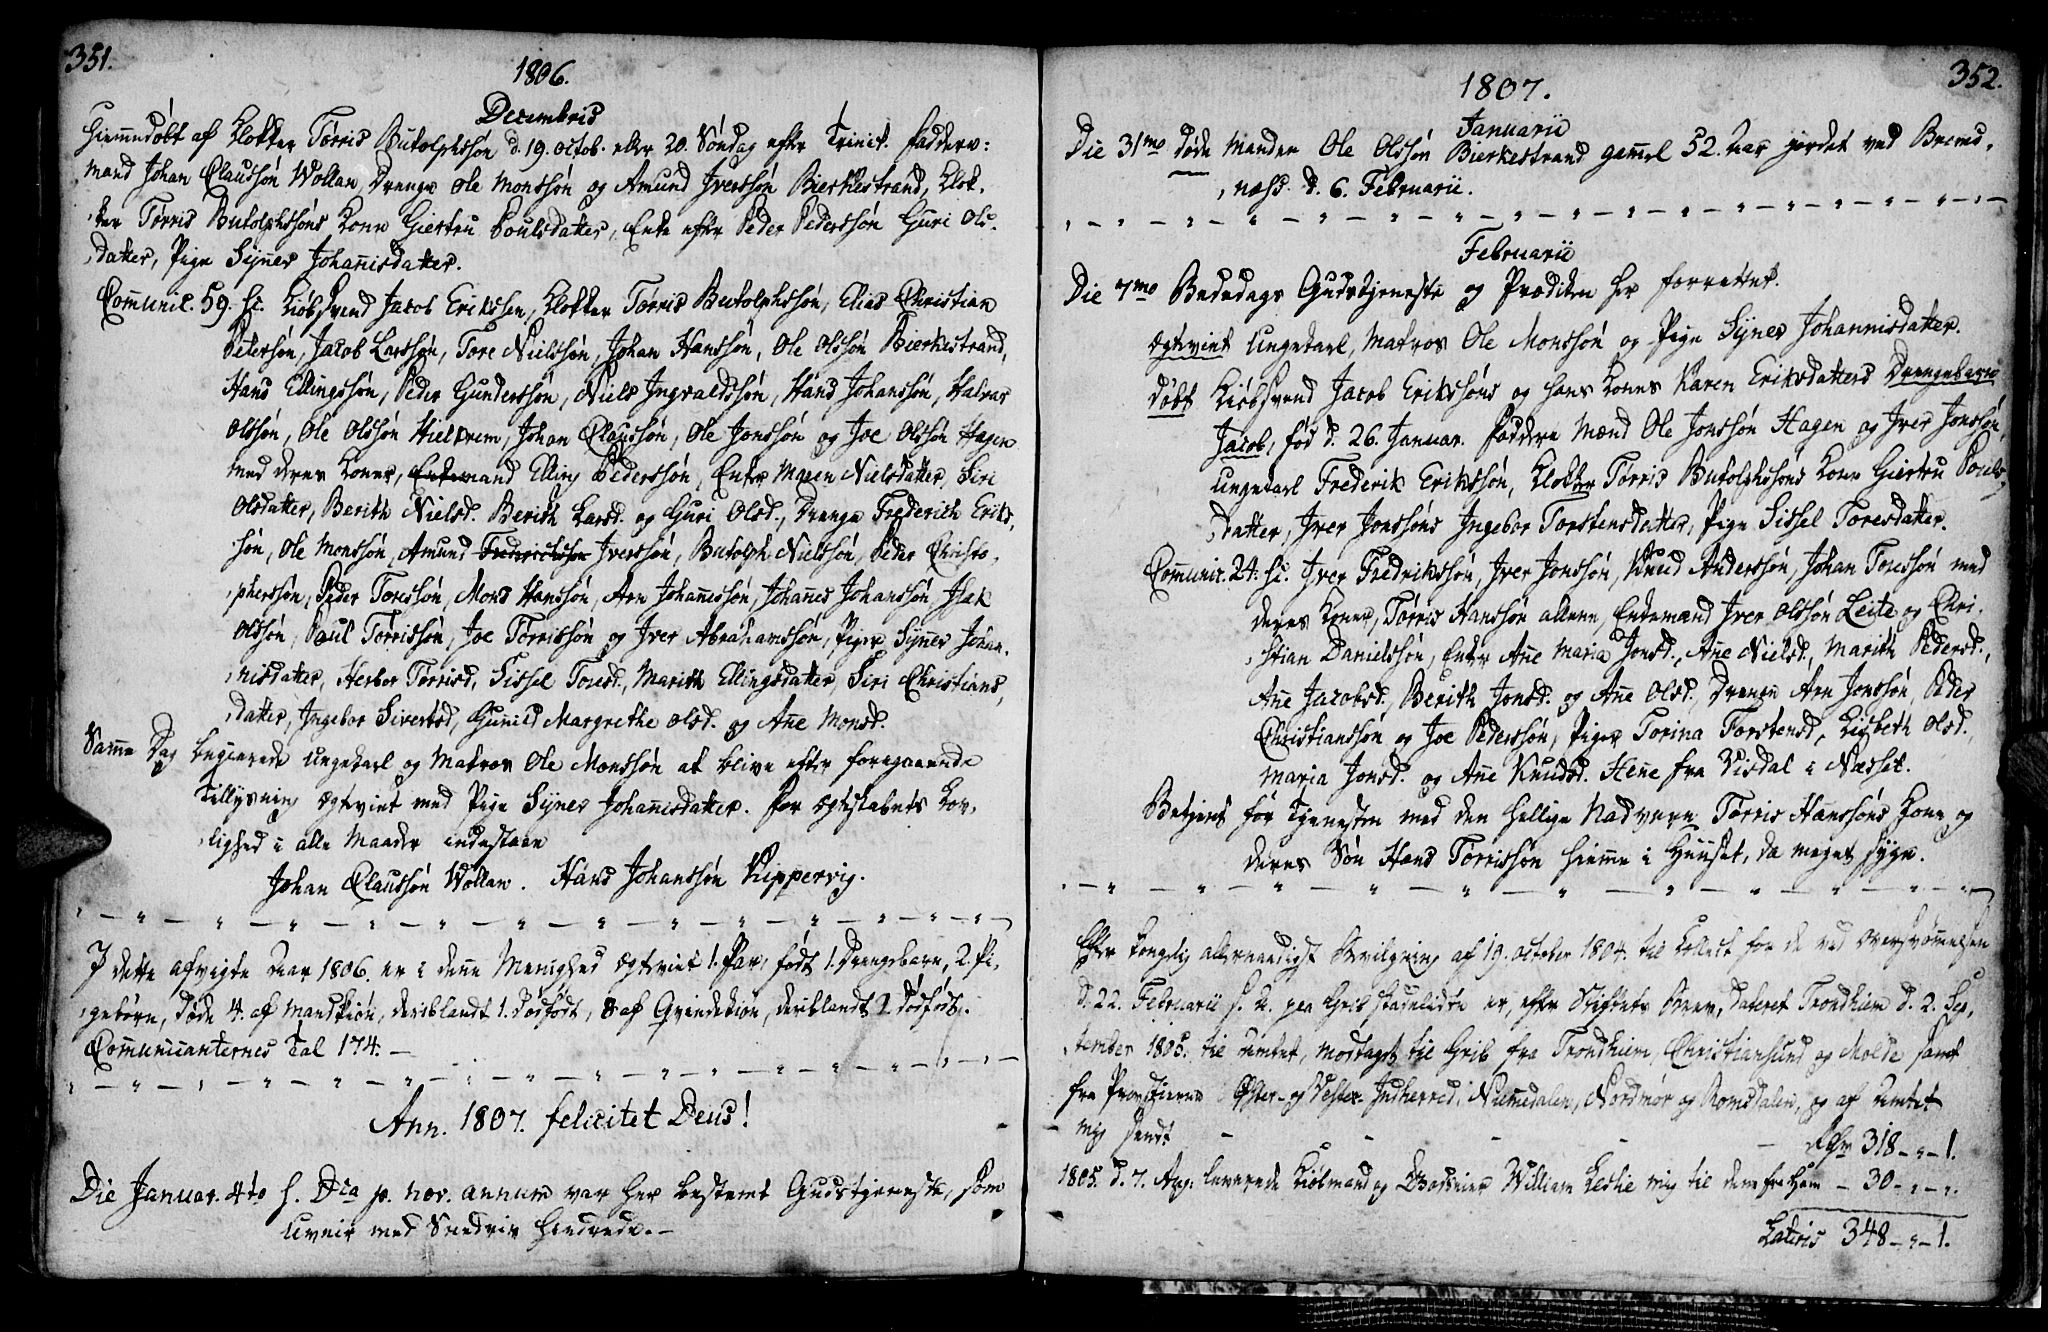 351.
1806.
Decembris
hiemmedøbt af Klokker Tørris Butolphssøn d. 19. octob. eller 20. Søndag efter Trinit. Faddere:
mand Johan Claussøn Wollan, Drenge Ole Monssøn og Amund Iverssøn Bierkestrand, Klok-
ker Tørris Butolphssøns Kone Giertru Poulsdatter, Enke efter Peder Pederssøn Guri Ols-
datter, Pige Synes Johannisdatter.
Communic. 59. sc. Kiøbsvend Jacob Erikssen, Klokker Tørris Butolphssøn, Elias Christian
Petersøn, Jacob Larssøn, Tore Nielssøn, Johan Hanssøn, Ole Olssøn Bierkestrand,
Hans Ellingssøn, Peder Gunderssøn, Niels Ingvaldssøn, Hans Johanssøn, Halvor
Olssøn, Ole Olssøn Hielkrem, Johan Claussøn, Ole Jonssøn og Joe Olssøn Hagen
med deres Koner, Enkemand Elling Pederssøn, Enker Maren Nielsdatter, Siri
Olsdatter, Berith Nielsd. Berith Larsd. og Guri Olsd., Drenge Frederich Eriks-
søn, Ole Monssøn, Amund Frederichssøn Iverssøn, Butolph Nielssøn, Peder Christo-
pherssøn, Peder Toressøn, Mons Hanssøn, Arn Johannessøn, Johannes Johanssøn, Isak
Olssøn, Paul Tørrissøn, Joe Tørrissøn og Iver Abrahamssøn, Piger Synes Johan-
nisdatter, Herbor Tørrisd, Sissel Toresd., Marith Ellingsdatter, Siri Christians-
datter, Ingebor Sivertsd, Gunild Margrethe Olsd. og Ane Monsd.
Samme Dag begierede ungekarl og Matros Ole Monssøn at blive efter foregaaende
Tillysning ægteviet med Pige Synes Johannisdatter. For Ægteskabets Lov-
lighed i alle Maader indestaae
Johan Claussøn Wollan. Hans Johanssøn Kippervig.
I dette afvigte Aar 1806. er i denne Menighed ægteviet 1. Par, født 1. Drengebarn, 2. Pi-
gebørn, Døde 4. af Mandkiøn, deriblandt 1. Dødfødt, 8 af Qvindekiøn, deriblandt 1. Dødfødt.
Communicanternes Tal 174. —
Ann. 1807. felicitet Deus!
Die Januar. 4to s. Dca p. nov. annum var her bestemt Gudstjeneste, som
Uveir med Sneedriv hindrede. —
352.
1807.
Januarii
Die 31mo Døde Manden Ole Olssøn Bierkestrand gamel 52. Aar jordet ved Brems-
næss. d. 6. Februarii.
Februarii
Die 7mo Bededags Gudstjeneste og Prædiken her forrettet.
Ægteviet Ungekarl, Matros Ole Monssøn og Pige Synes Johannisdatter.
Døbt Kiøbsvend Jacob Erikssøns og hans Kones Karen Eriksdatters Drengebarn
Jacob, fød d. 26. Januar. Faddere Mænd Ole Jonssøn Hagen og Iver Jonssøn,
Ungekarl Frederik Erikssøn, Klokker Tørris Butolphssøns Kone Giertru Pouls-
datter, Iver Jonssøns Ingebor Torstensdatter, Pige Sissel Toresdatter.
Communic. 24. sc. Iver Fredrikssøn, Iver Jonssøn, Knud Anderssøn, Johan Toressøn med
deres Koner, Tørris Hanssøn allene, Enkemand Iver Olssøn Leite og Chri-
stian Danielssøn, Enker Ane Maria Jonsd., Ane Nielsd., Marith Pedersd.,
Ane Jacobsd., Berith Jonsd. og Ane Olsd. Drenge Arn Jonssøn, Peder
Christianssøn og Joe Pederssøn, Piger Torina Torstensd, Lisbeth Olsd.
Maria Jonsd. og Ane Knudsd. Hene fra Visdal i Nesset.
Betjent før Tjenesten med den hellige Nadvere Tørris Hanssøns Kone og
deres Søn Hans Tørrissøn hiemme i Huuset, da meget syge.
Efter Kongelig allernaadigst Bevilgning af 19. october 1804. til Collect for de ved Oversvømmelsen
d. 22. Februarii s. A. paa Grib skadelidte er, efter Stiftets Brev, dateret Trondhiem d. 2. Sep-
tember 1805. til Amtet, modtaget til Grib fra Trondhiem, Christiansund og Molde samt
fra Provstierne Øster- og Vester Inderherred, Nummedalen, Nordmør og Romsdalen, og af Amtet
mig sendt - - - - - Rdr 318 - „ - 1.
1805. d. 7. Aug. leverede Kiøbmand og William Leslie mig til dem fra Ham - 30 - „ - „.
Lateris 348 - „ - 1.